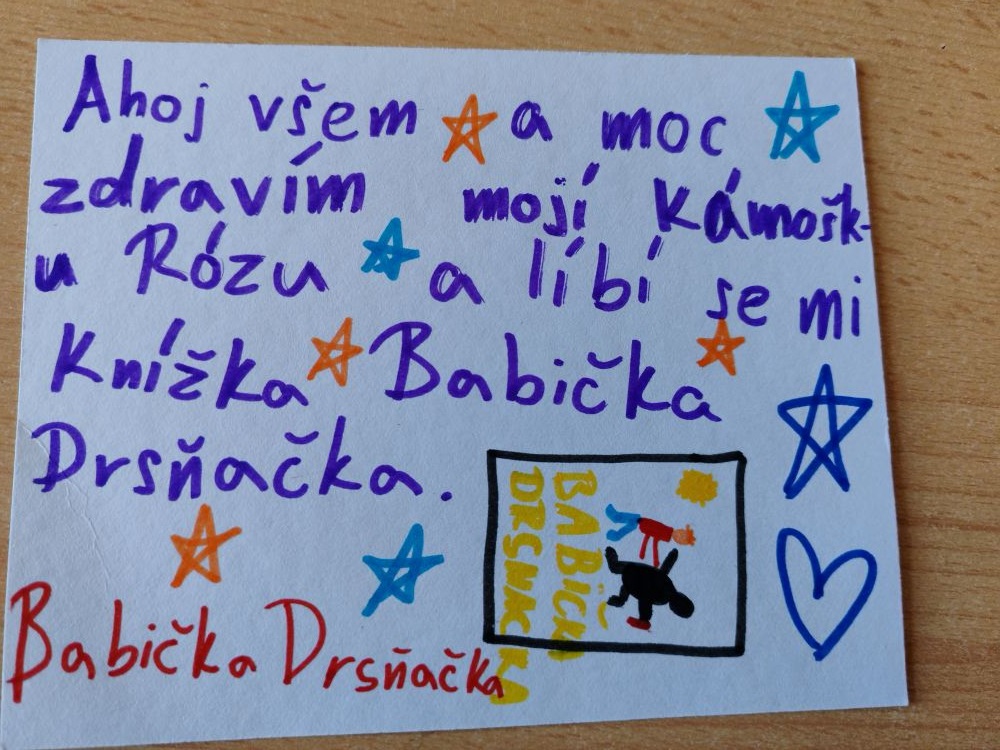 Ahoj všem a moc
zdravím mojí kámošk-
u Rózu a líbí se mi
Knížka Babička
Drsňačka.
BABIČKA
DRSNAČKA
Babička Drsňačka